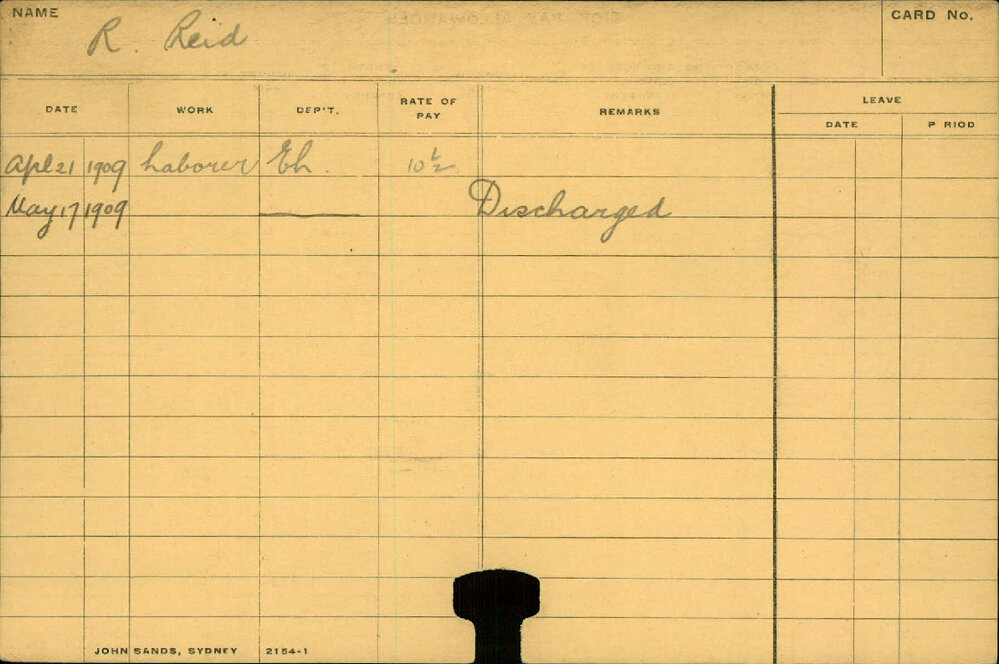 NAME R. Reid CARD No.
DATE WORK DEP'T. RATE OF PAY REMARKS LEAVE
DATE P RIOD
Apl 21 1909 Laborer Eh. 10 1/2
May 17 1909 Discharged
JOHN SANDS, SYDNEY 2154-1